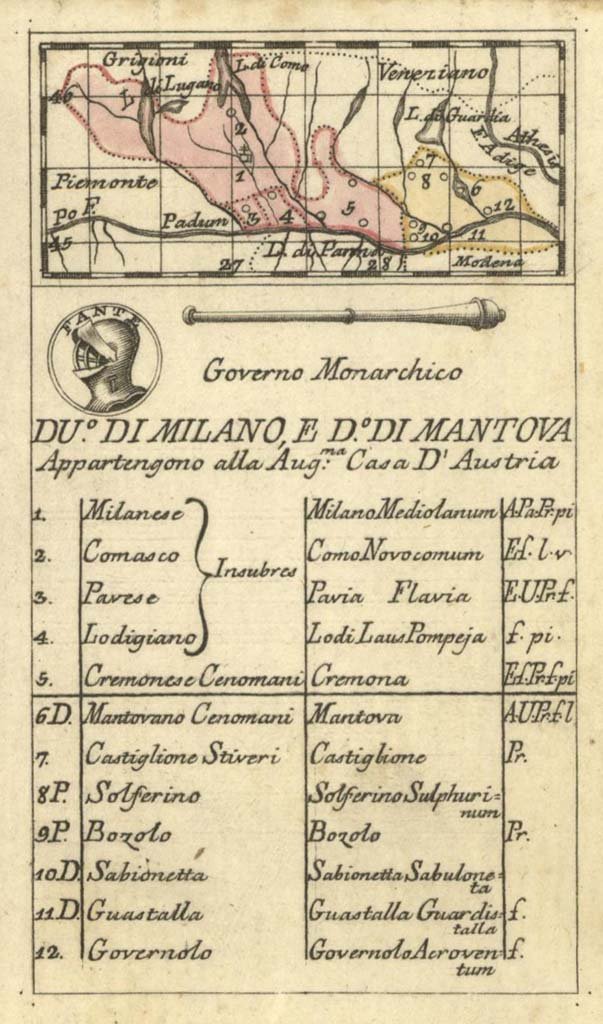 Grigioni
L. di Como
di Lugano
Veneziano
46
L.
L. di Guardia
Athesis
F. Adige
2
7
8
6
1
Piemonte
5
12
Po F.
Padum
3
4
9
10
11
45
27
D. di Parma
28
Modena
FANTE
Governo Monarchico
DU.º DI MILANO, E D.º DI MANTOVA
Appartengono alla Aug.ma Casa D' Austria
1. Milanese Milano Mediolanum A.Pa.Pr.pi
2. Comasco Insubres Como Novocomum E.f. l. v.
3. Pavese Pavia Flavia E.U.Pr.f.
4. Lodigiano Lodi Laus Pompeja f. pi.
5. Cremonese Cenomani Cremona E.f.Pr.f.pi
6 D. Mantovano Cenomani Mantova A.U.Pr.f.l
7. Castiglione Stiveri Castiglione Pr.
8 P. Solferino Solferino Sulphuri=
num
9 P. Bozolo Bozolo Pr.
10 D. Sabionetta Sabionetta Sabulone=
ta
11 D. Guastalla Guastalla Guardis= f.
talla
12. Governolo Governolo Acroven= f.
tum